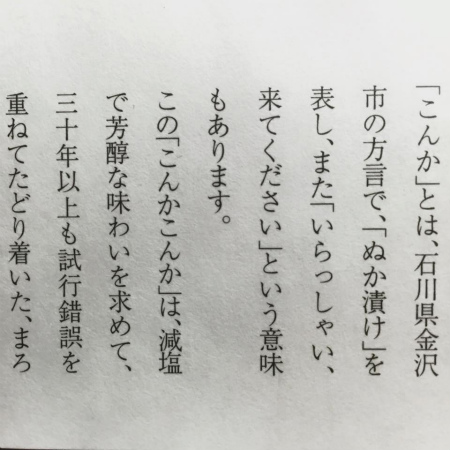 「こんか」とは、石川県金沢
市の方言で、「ぬか漬け」を
表し、また「いらっしゃい、
来てください」という意味
もあります。
この「こんかこんか」は、減塩
で芳醇な味わいを求めて、
三十年以上も試行錯誤を
重ねてたどり着いた、まろ